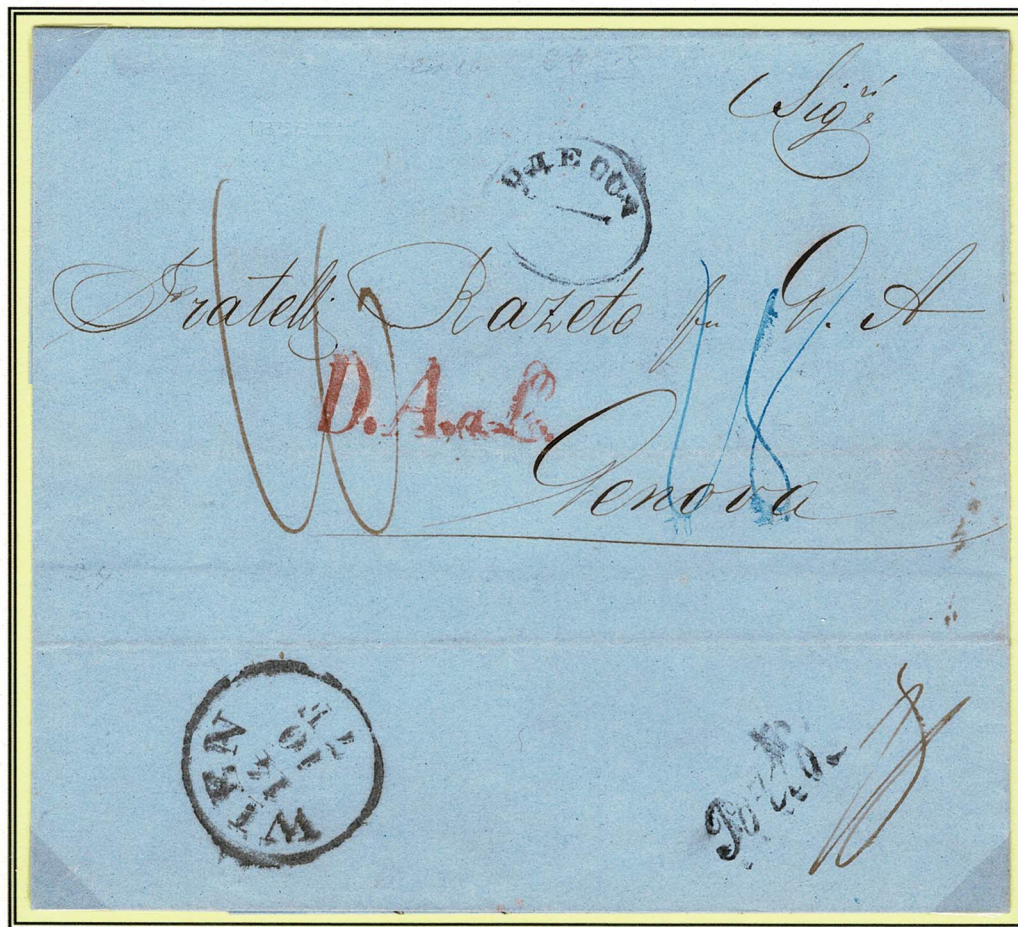 Sigri
ОДЕССА
Fratelli Razeto fu G. A
D. A. a. L.
18
Genova
WIEN
Porto.